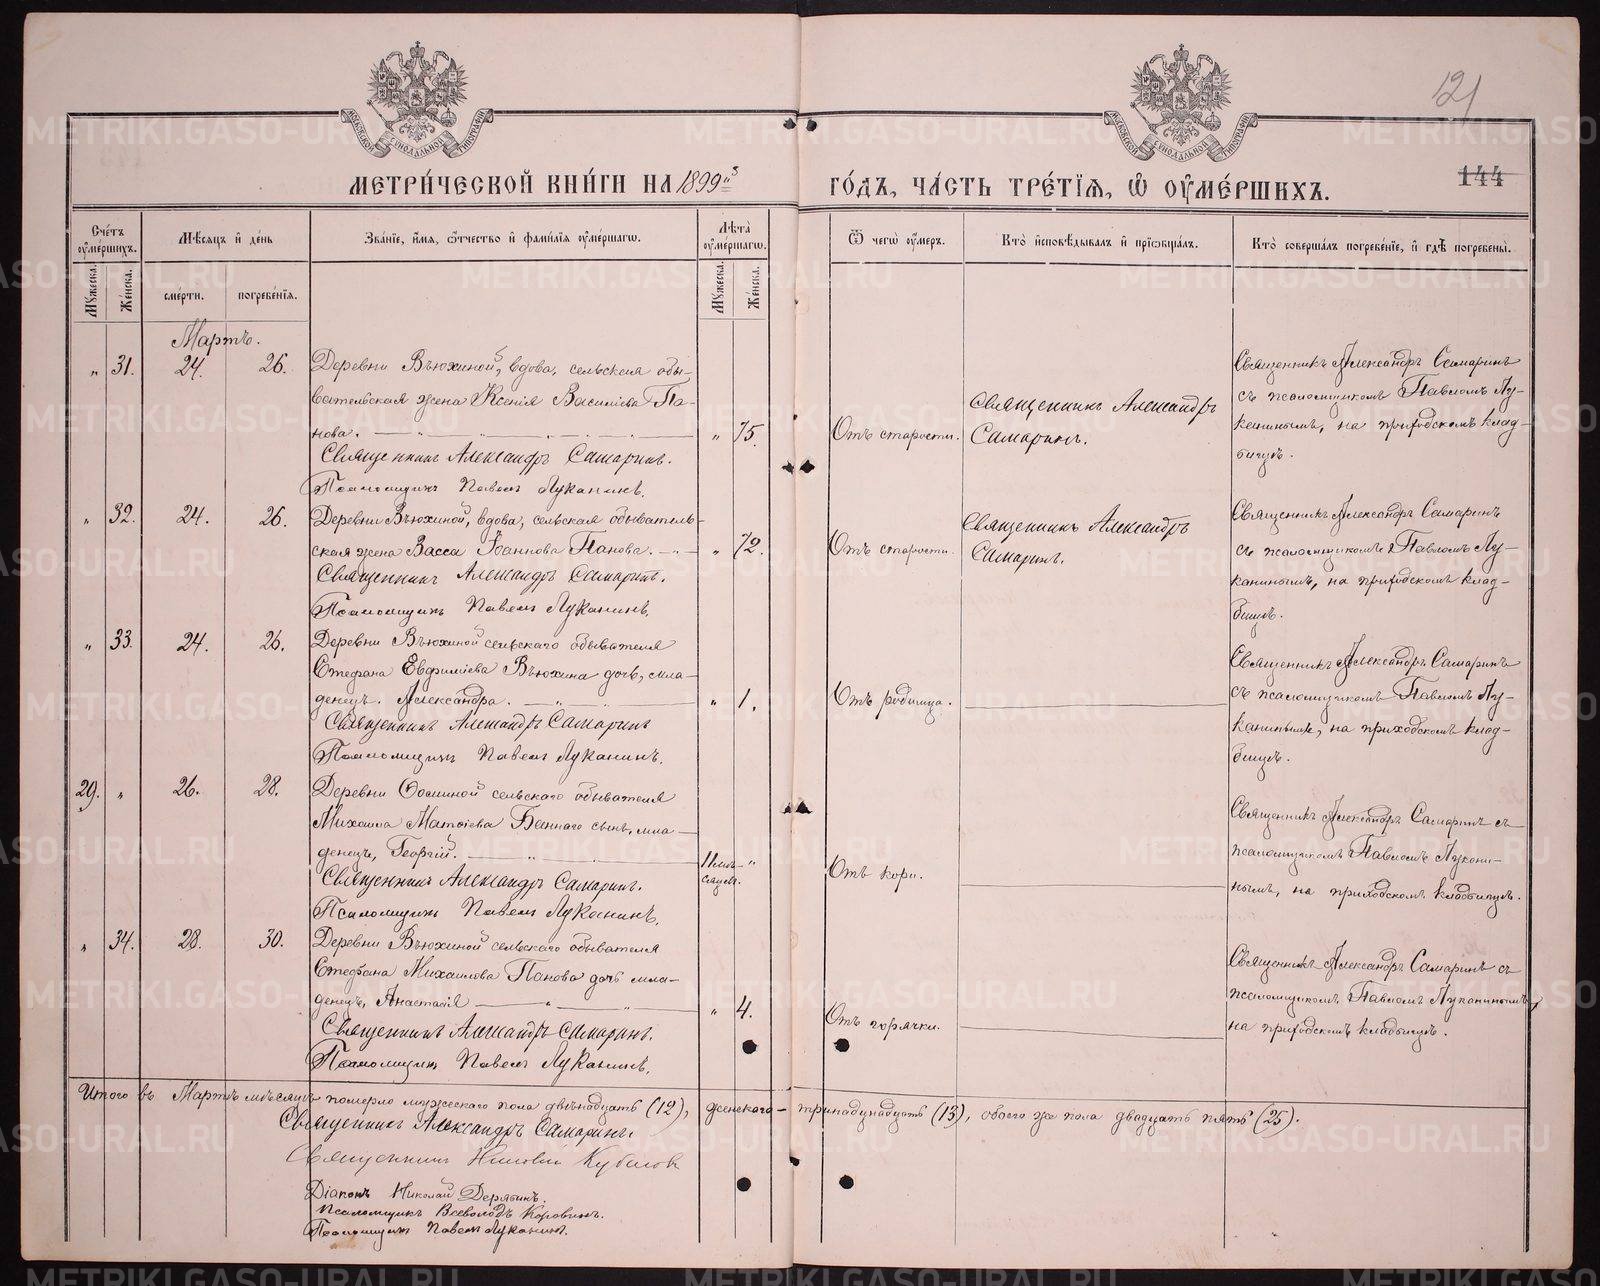 121
144
МЕТРИ́ЧЕСКОЙ КНИ́ГИ НА 1899й
ГО́ДЪ, ЧА́СТЬ ТРЕ́ТІѦ, Ѡ҆ ОУ҆МЕ́РШИХЪ.
Сче́тъ оу҆ме́ршихъ.
Мꙋ́жеска.
Же́нска.
Мѣ́сѧцъ и҆ де́нь
сме́рти.
погребе́нїѧ.
Зва́нїе, и҆́мѧ, ѻ҆́тчество и҆ фами́лїѧ оу҆ме́ршагѡ.
Лѣ́та оу҆ме́ршагѡ.
Мꙋ́жеска.
Же́нска.
Ѿ чегѡ̀ оу҆́меръ.
Кто̀ и҆сповѣ́дывалъ и҆ прїѡбща́лъ.
Кто̀ соверша́лъ погребе́нїе, и҆ гдѣ̀ погребены̀.
Мартъ.
" 31. 24. 26.
Деревни Вьюхиной, вдова, сельская обы-
вательская жена Ксенія Василіева Па-
нова.
Священникъ Александръ Самаринъ.
Псаломщикъ Павелъ Луканинъ.
" 75.
Отъ старости.
Священникъ Александръ
Самаринъ.
Священникъ Александръ Самаринъ
съ псаломщикомъ Павломъ Лу-
канинымъ, на приходскомъ клад-
бищѣ.
" 32. 24. 26.
Деревни Вьюхиной, вдова, сельская обыватель-
ская жена Васса Іоаннова Панова.
Священникъ Александръ Самаринъ.
Псаломщикъ Павелъ Луканинъ.
" 72.
Отъ старости.
Священникъ Александръ
Самаринъ.
Священникъ Александръ Самаринъ
съ псаломщикомъ Павломъ Лу-
канинымъ, на приходскомъ клад-
бищѣ.
" 33. 24. 26.
Деревни Вьюхиной сельскаго обывателя
Стефана Евфиміева Вьюхина дочь, мла-
денецъ. Александра.
Священникъ Александръ Самаринъ
Псаломщикъ Павелъ Луканинъ.
" 1.
Отъ родимца.
Священникъ Александръ Самаринъ
съ псаломщикомъ Павломъ Лу-
канинымъ, на приходскомъ клад-
бищѣ.
29. " 26. 28.
Деревни Фоминой сельскаго обывателя
Михаила Матѳіева Баннаго сынъ, мла-
денецъ, Георгій.
Священникъ Александръ Самаринъ.
Псаломщикъ Павелъ Луканинъ.
11 мѣ- "
сяцевъ.
Отъ кори.
Священникъ Александръ Самаринъ съ
псаломщикомъ Павломъ Лукани-
нымъ, на приходскомъ кладбищѣ.
" 34. 28. 30.
Деревни Вьюхиной сельскаго обывателя
Стефана Михаилова Панова дочь мла-
денецъ, Анастасія
Священникъ Александръ Самаринъ.
Псаломщикъ Павелъ Луканинъ.
" 4.
Отъ горячки.
Священникъ Александръ Самаринъ съ
псаломщикомъ Павломъ Луканинымъ,
на приходскомъ кладбищѣ.
Итого въ Мартѣ мѣсяцѣ померло мужескаго пола двѣнадцать (12), женскаго - тринадцать (13), обоего же пола двадцать пять (25).
Священникъ Александръ Самаринъ.
Священникъ
Діаконъ Николай Дерябинъ.
Псаломщикъ Всеволодъ Коровинъ.
Псаломщикъ Павелъ Луканинъ.
METRIKI.GASO-URAL.RU